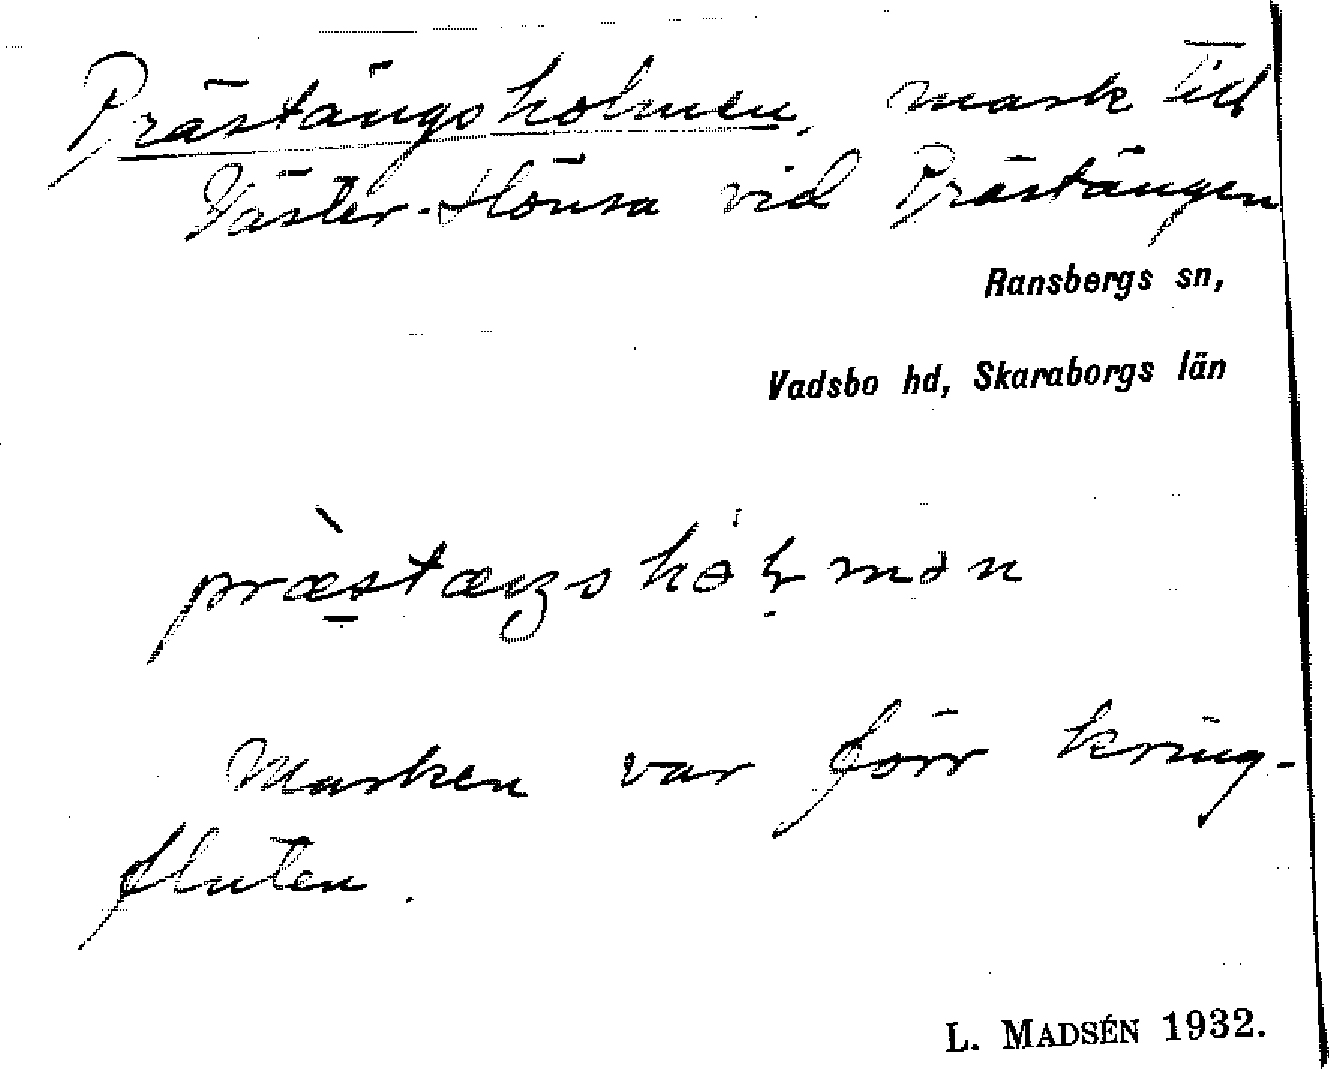 Prästängsholmen, mark till
Väster-Hönsa vid Prästängen
Ransbergs sn,
Vadsbo hd, Skaraborgs län
Marken var förr kring-
fluten.
L. MADSÉN 1932.